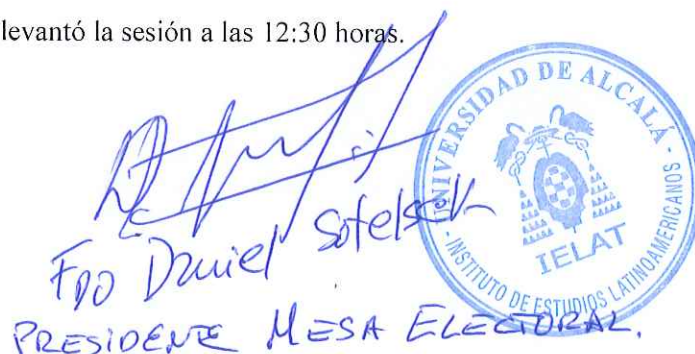 levantó la sesión a las 12:30 horas.
UNIVERSIDAD DE ALCALÁ - INSTITUTO DE ESTUDIOS LATINOAMERICANOS
IELAT
FDO Daniel Sotelsek
PRESIDENTE MESA ELECTORAL.